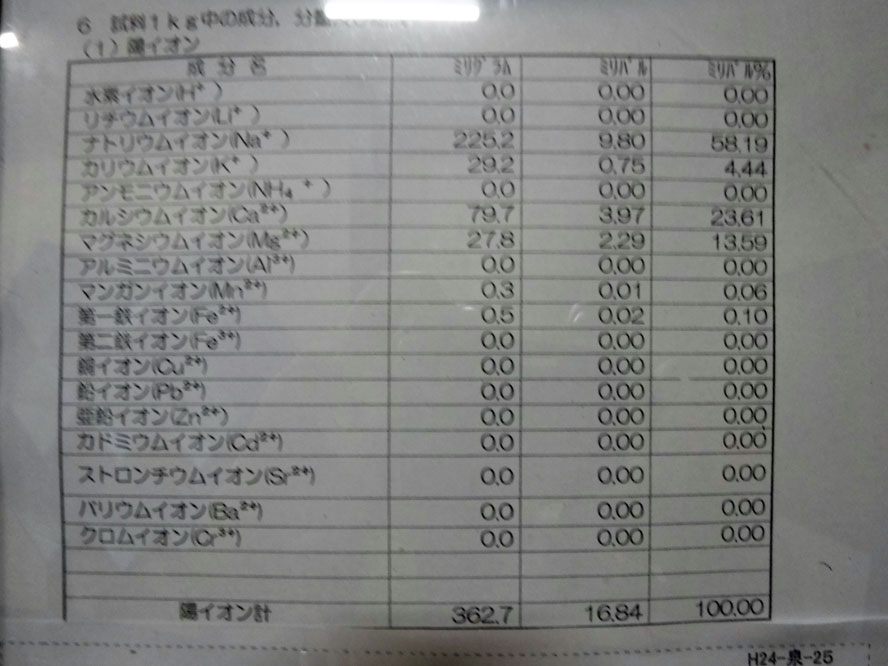 6 試料1kg中の成分、分量
(1) 陽イオン
成 分 名 ミリグラム ミリバル ミリバル%
水素イオン(H⁺) 0.0 0.00 0.00
リチウムイオン(Li⁺) 0.0 0.00 0.00
ナトリウムイオン(Na⁺) 225.2 9.80 58.19
カリウムイオン(K⁺) 29.2 0.75 4.44
アンモニウムイオン(NH₄⁺) 0.0 0.00 0.00
カルシウムイオン(Ca²⁺) 79.7 3.97 23.61
マグネシウムイオン(Mg²⁺) 27.8 2.29 13.59
アルミニウムイオン(Al³⁺) 0.0 0.00 0.00
マンガンイオン(Mn²⁺) 0.3 0.01 0.06
第一鉄イオン(Fe²⁺) 0.5 0.02 0.10
第二鉄イオン(Fe³⁺) 0.0 0.00 0.00
銅イオン(Cu²⁺) 0.0 0.00 0.00
鉛イオン(Pb²⁺) 0.0 0.00 0.00
亜鉛イオン(Zn²⁺) 0.0 0.00 0.00
カドミウムイオン(Cd²⁺) 0.0 0.00 0.00
ストロンチウムイオン(Sr²⁺) 0.0 0.00 0.00
バリウムイオン(Ba²⁺) 0.0 0.00 0.00
クロムイオン(Cr³⁺) 0.0 0.00 0.00
陽イオン計 362.7 16.84 100.00
H24-泉-25